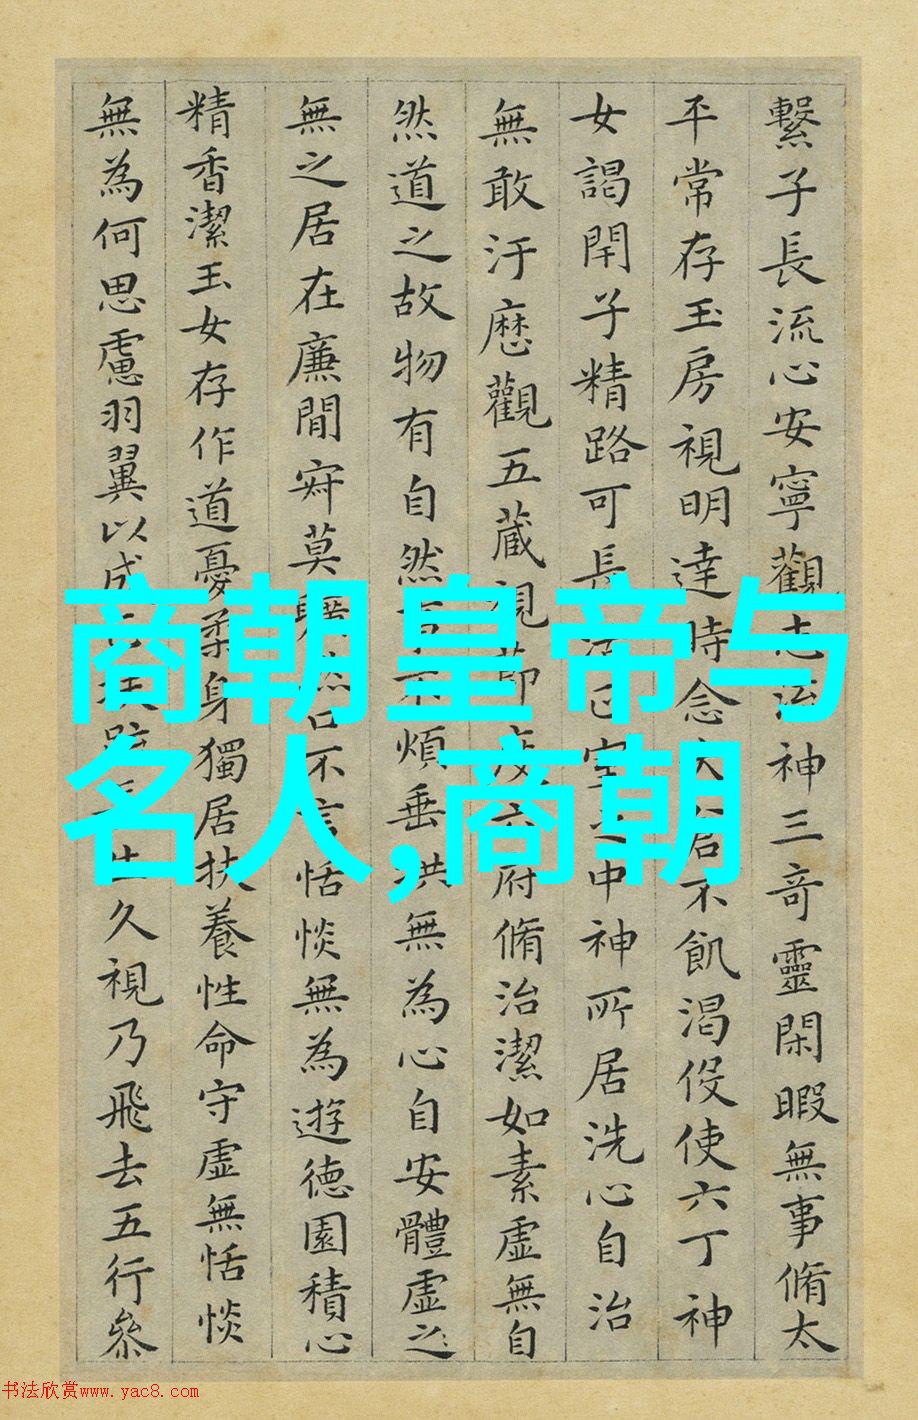 繫子長流心安寧觀志流神三奇靈閑暇無事脩太
平常存玉房視明達時念大倉不飢渴役使六丁神
女謁閇子精路可長活正室之中神所居洗心自治
無敢汙歷觀五藏視節度六府脩治潔如素虛無自
然道之故物有自然事不煩垂拱無為心自安體虛之
無之居在廉間寂莫曠然口不言恬惔無為遊德園積心
精香潔玉女存作道憂柔身獨居扶養性命守虛無恬惔
無為何思慮羽翼以成正扶疏長生久視乃飛去五行參
商朝皇帝与
名人,商朝
书法欣赏www.yac8.com